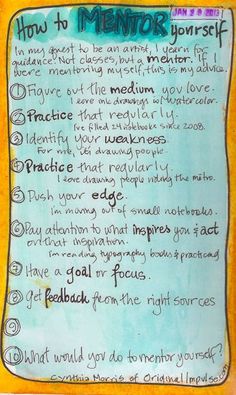 How to MENTOR yourself
JAN 28 2013
In my quest to be an artist, I yearn for
guidance. Not classes, but a mentor. If I
were mentoring myself, this is my advice.
① Figure out the medium you love.
I love line drawings w/watercolor.
② Practice that regularly.
I've filled 24 notebooks since 2008.
③ Identify your weakness
For me, it's drawing people.
④ Practice that regularly.
I love drawing people riding the metro.
⑤ Push your edge.
I'm moving out of small notebooks.
⑥ Pay attention to what inspires you & act
on that inspiration.
I'm reading typography books & practicing
⑦ Have a goal or focus.
⑧ get feedback from the right sources
⑨
⑩ What would you do to mentor yourself?
Cynthia Morris of Original Impulse.com